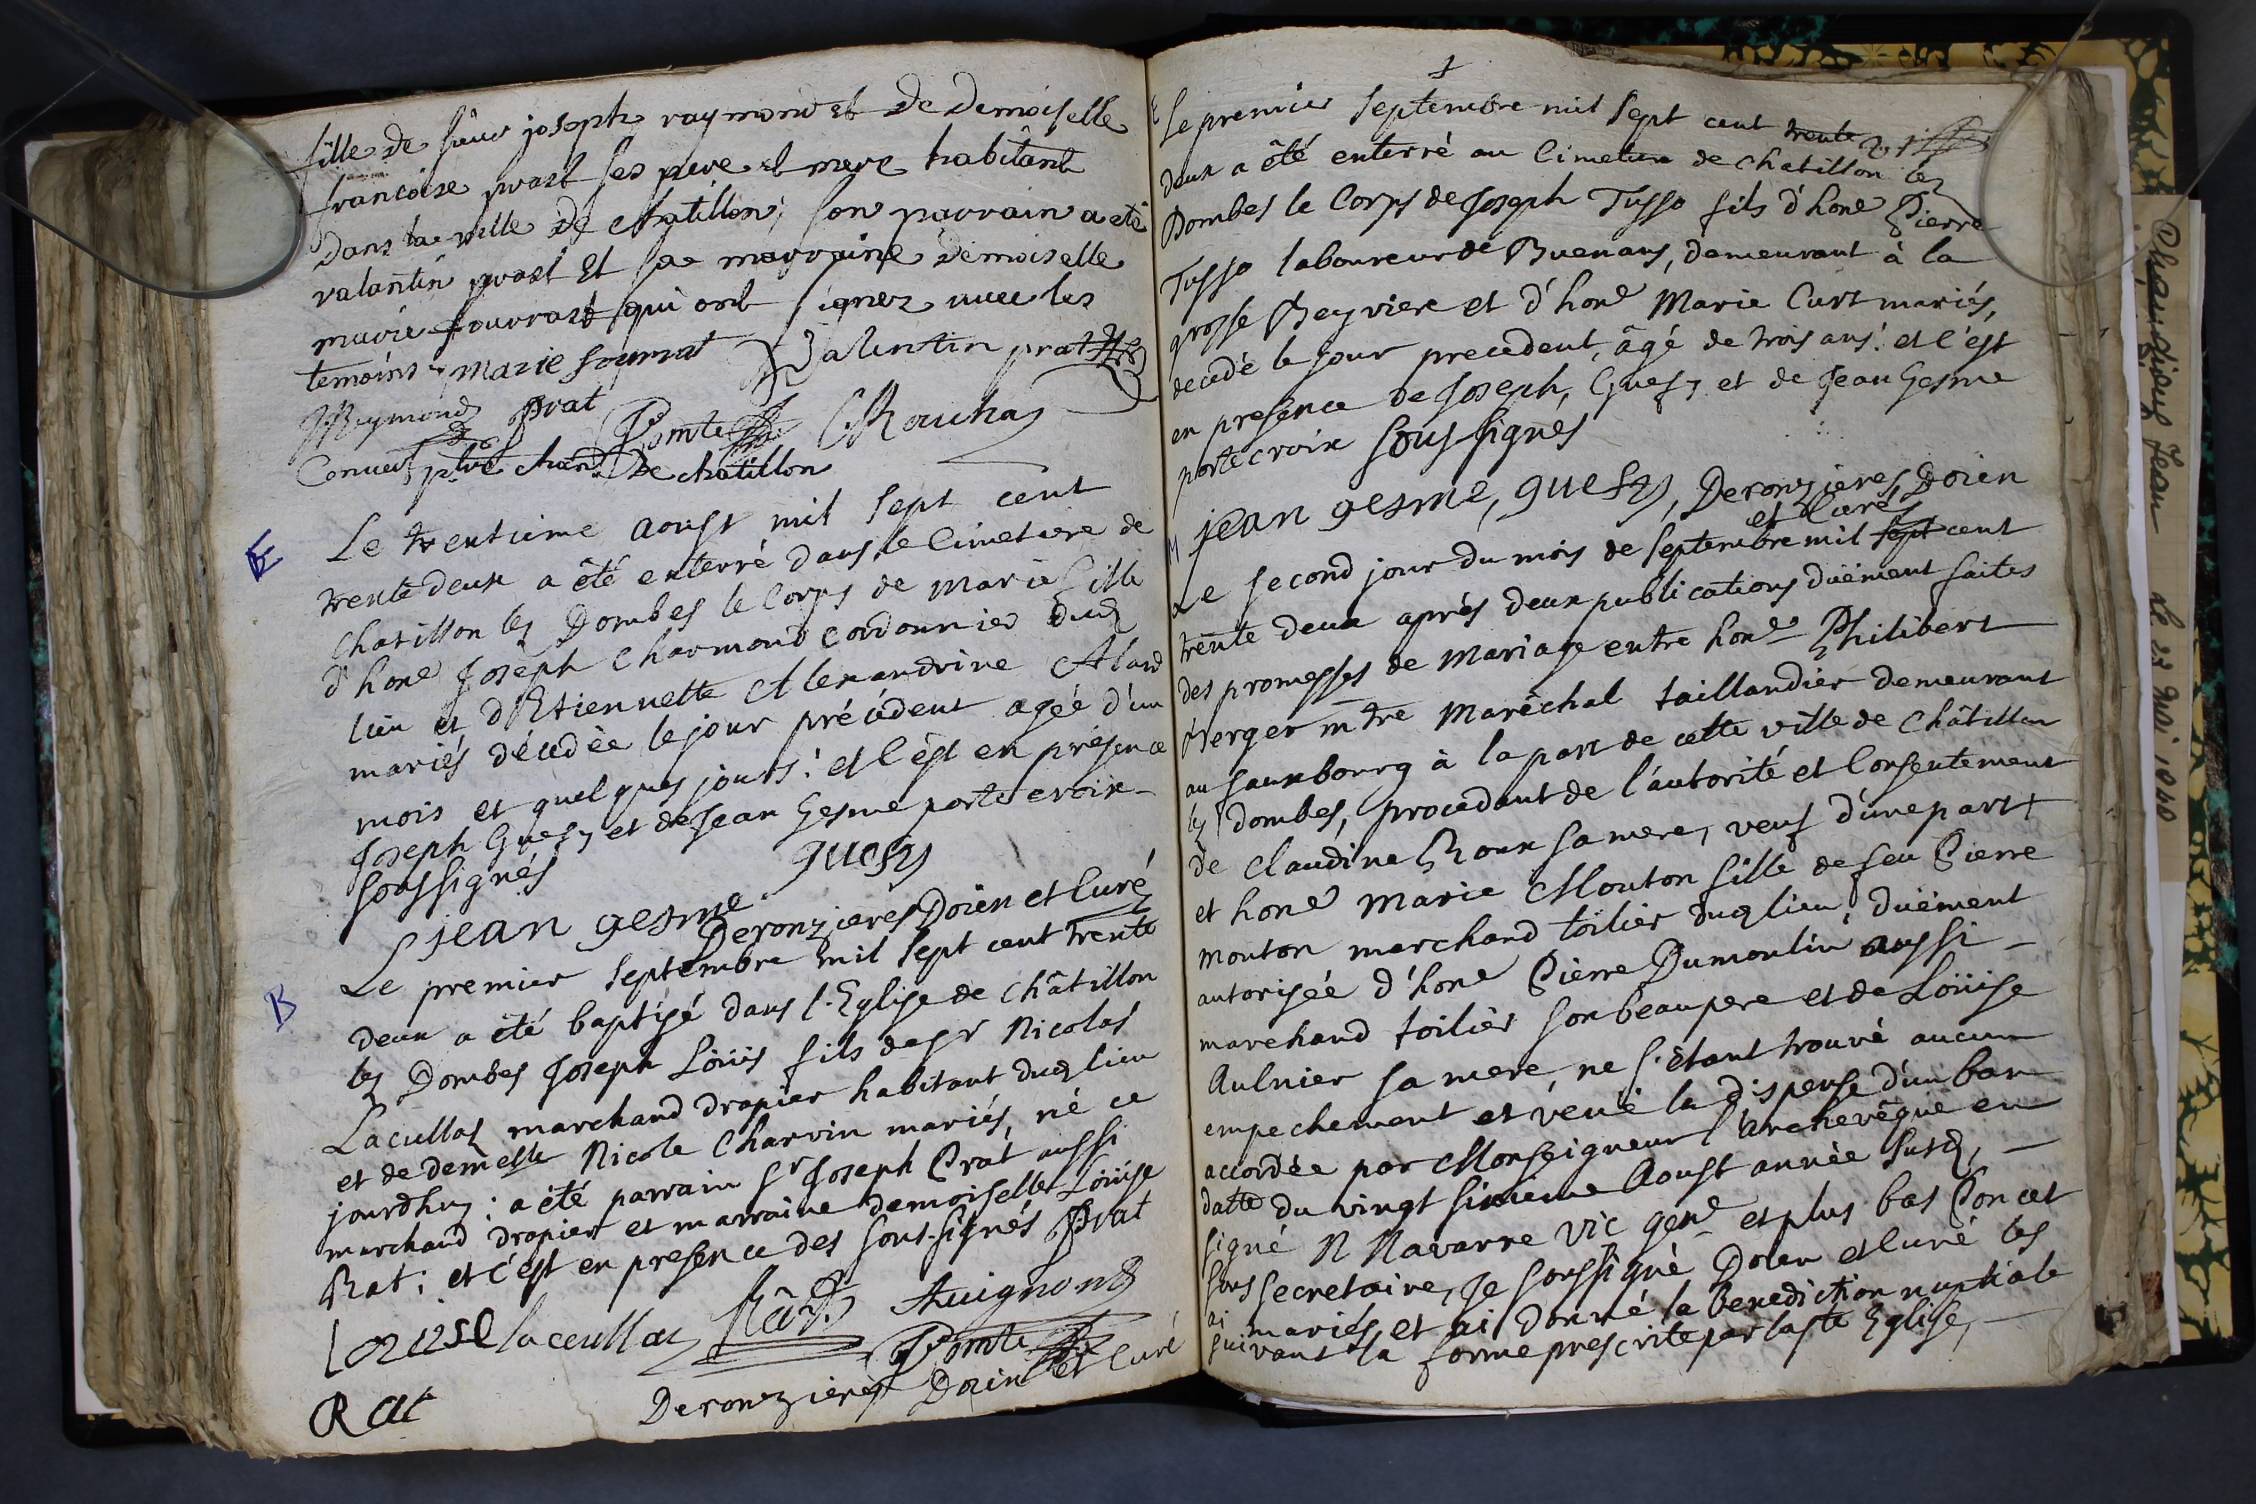 fille de sieur joseph raymond et de demoiselle
francoise prast ses pere et mere habitant
dans la ville de chatillon, son parrain a eté
valantin prast et sa marraine demoiselle
marie fourrast qui ont signez avec les
temoins marie fourrat Valentin prat
Reymond Prat
Pomte Rouchaz
Convert ptre chan. De chatillon
E
Le trentieme aoust mil sept cent
trente deux a été enterré dans le Cimetiere de
chatillon lez Dombes le Corps de marie fille
d'hone Joseph Charmond cordonnier dud
lieu et d'Etiennette Alexandrine Alard
mariés décédée le jour précédent agée d'un
mois et quelques jours: et c'est en présence
Joseph Guesy et de Jean Gesme porte croix
soussignés
guesy
jean gesme
Deronzieres Doïen et Curé
B
Le premier septembre mil sept cent trente
deux a été baptisé dans l'Eglise de châtillon
lez Dombes Joseph Loüis fils de sr Nicolas
Lacullaz marchand drapier habitant dud lieu
et de demelle Nicole Charvin mariés, né ce
jourdhuy: a été parrain sr Joseph Prat aussi
marchand drapier et marraine demoiselle Loüise
Rat; et c'est en presence des sous-signés Prat
Louise lacullaz Rât Avignond
Rat
Pomte
Deronzieres Doïen et curé
1
E
Le premier septembre mil sept cent trente
deux a été enterré au Cimetiere de chatillon lez
Dombes le Corps de Joseph Tusso fils d'hone Pierre
Tusso laboureur de Buenans, demeurant à la
grosse Beyviere et d'hone Marie Curt mariés,
decedé le jour precedent, âgé de trois ans: et c'est
en presence de Joseph Guesy et de Jean Gesme
porte croix soussignés
jean gesme, guesy, Deronzieres Doïen
et Curé
M
Le second jour du mois de septembre mil sept cent
trente deux après deux publications düëment faites
des promesses de mariage entre hone Philibert
Berger mtre Maréchal taillandier demeurant
au fauxbourg à la part de cette ville de Châtillon
lez dombes, procedant de l'autorité et Consentement
de Claudine Roux sa mere, veuf d'une part
et hone Marie Mouton fille de feu Pierre
mouton marchand toilier dud lieu, düëment
autorisée d'hone Pierre Dumoulin aussi
marchand toilier son beaupere et de Loüise
Aulnier sa mere, ne s'étant trouvé aucun
empechement et veüe la dispense d'un ban
accordée par Monseigneur l'Archevêque en
datte du vingt sixieme Aoust année susd,
signé N Navarre vic gene et plus bas Poncet
sous secretaire, Je soussigné Doïen et Curé les
ai mariés, et ai donné la Benediction nuptiale
suivant la forme prescrite par la ste Eglise,
Jean le 23 Mai